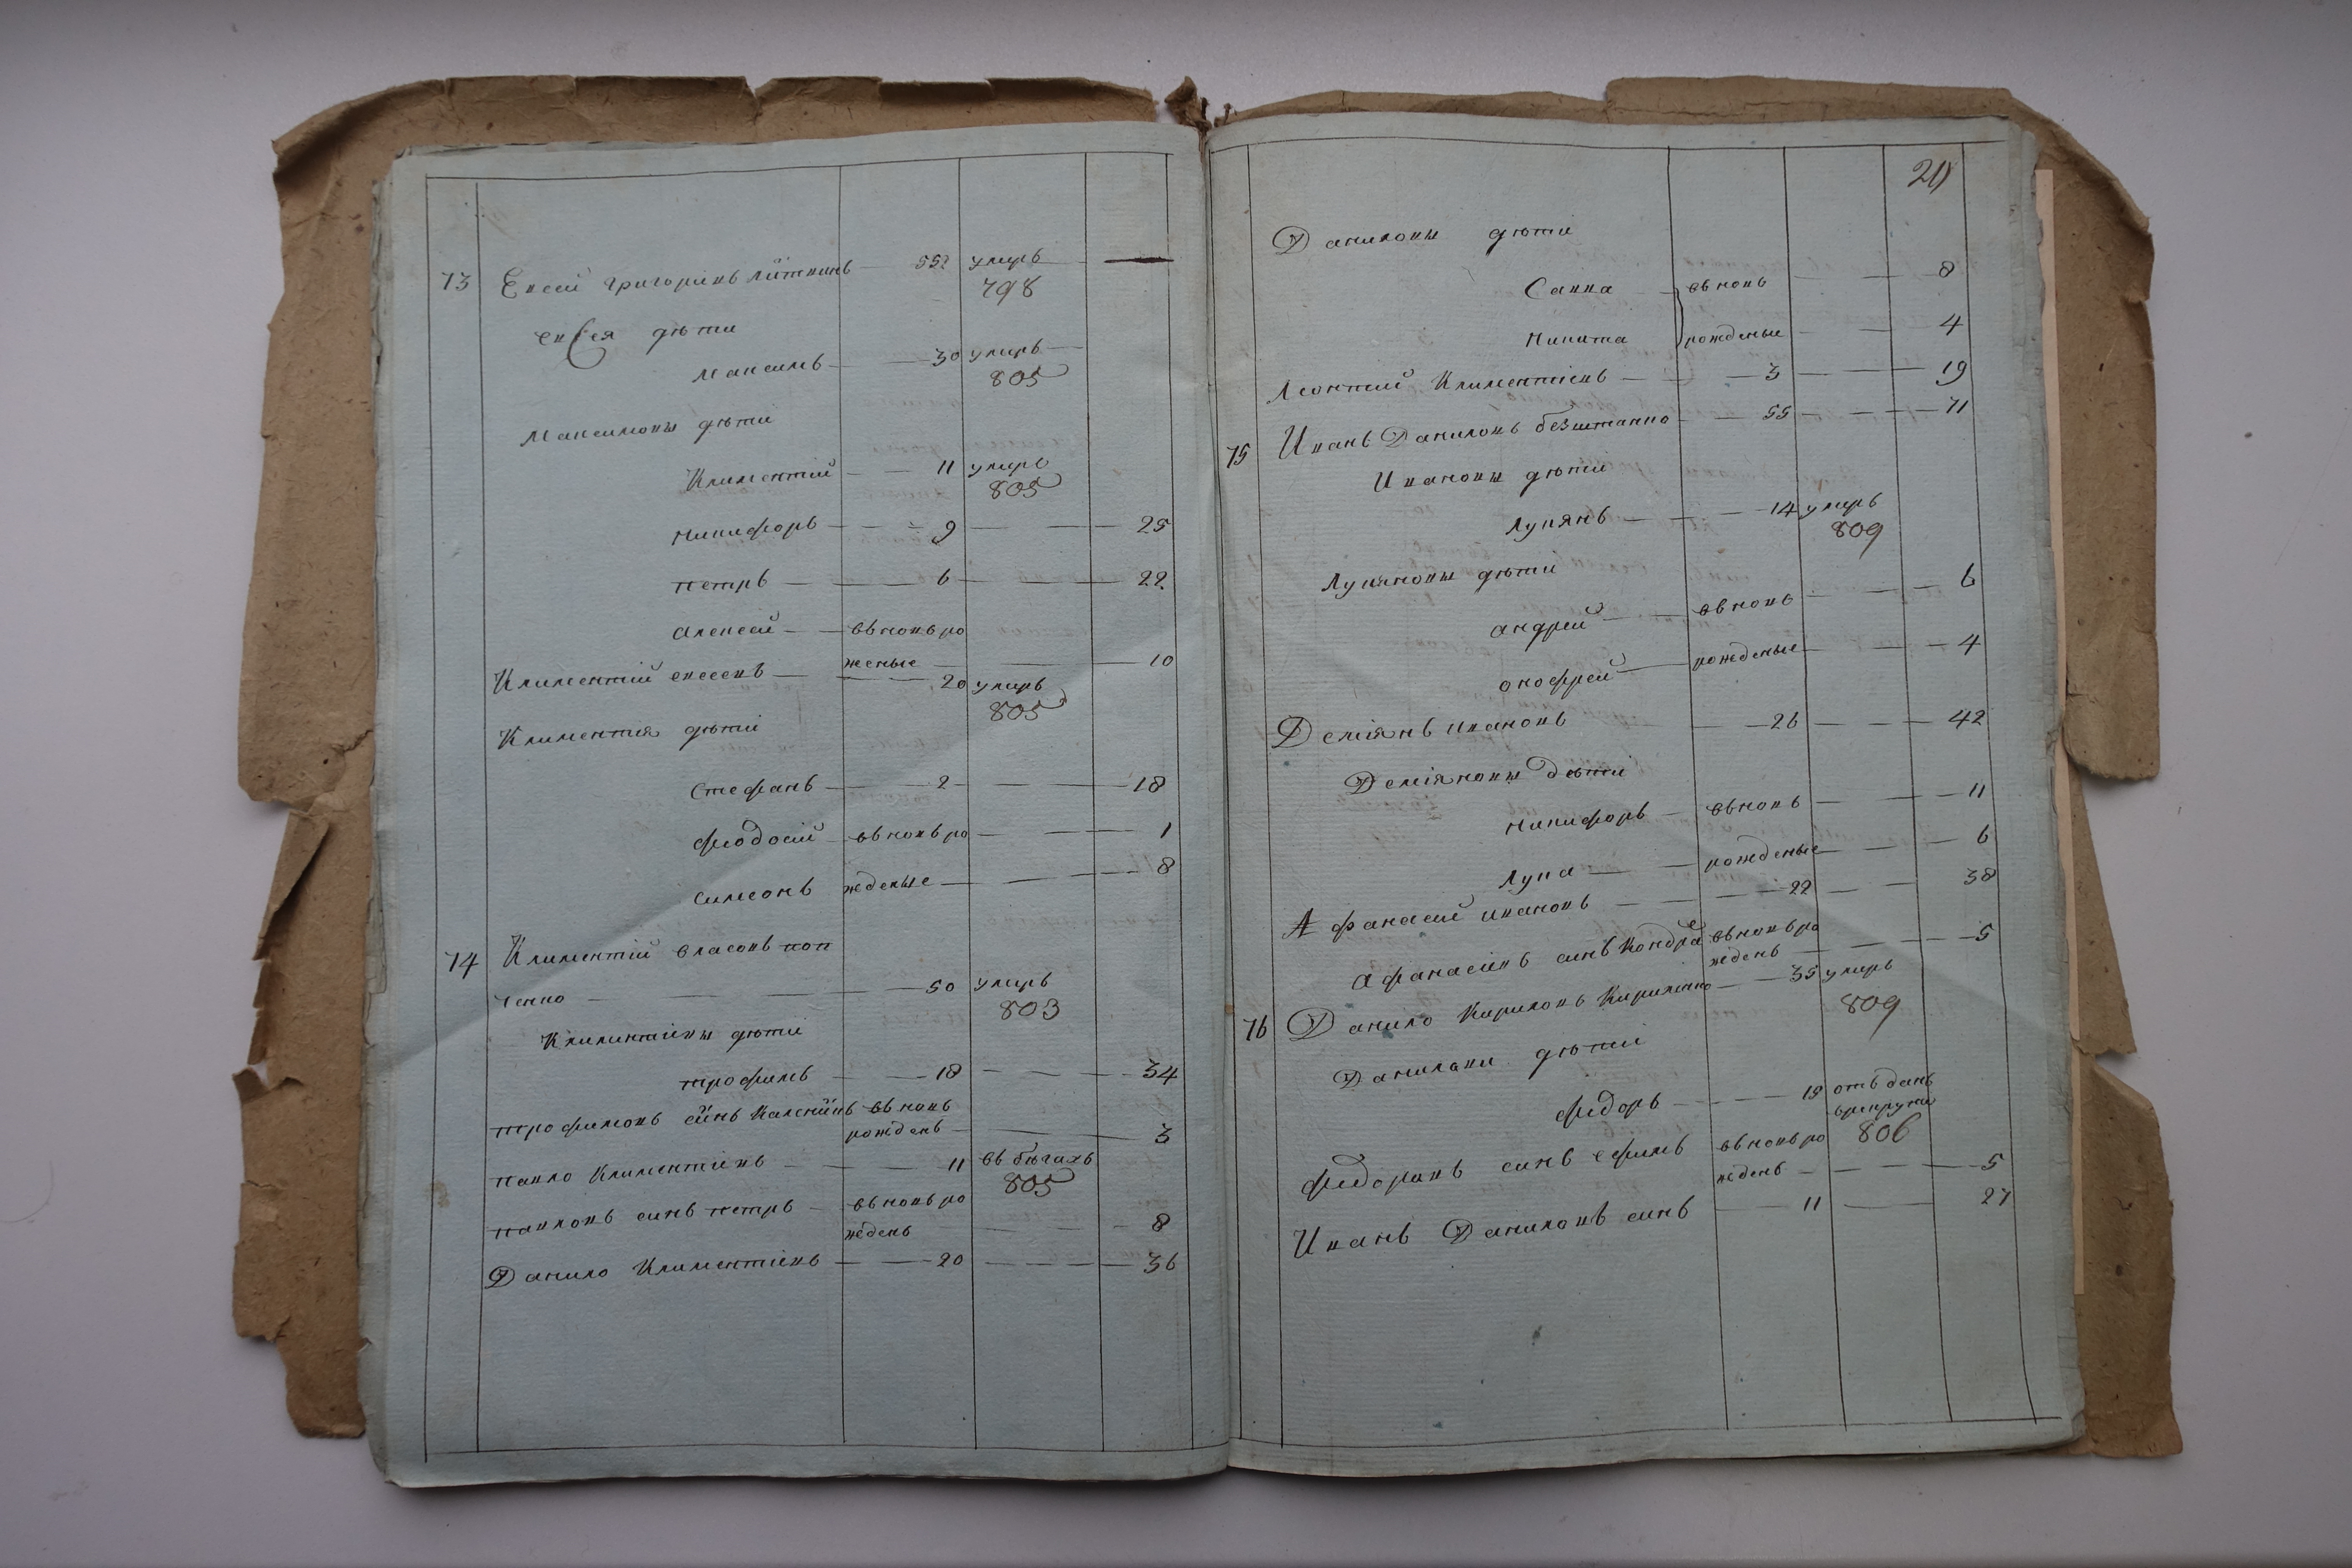 73 Евсей Григориевъ Литвинъ — 55 умеръ —
798
евсея дѣти
Максимъ — 30 умеръ —
805
Максимовы дѣти
Климентий — 11 умеръ
805
никифоръ — 9 — 25
петръ — 6 — 22
алексей — въ новь ро
женые — 10
Климентий евсеевъ — 20 умеръ
805
Климентия дѣти
Стефанъ — 2 — 18
феодосий — въ новь ро — 1
симеонъ жденые — 8
74 Климентий власовъ поп
ченко — 50 умеръ
803
Климентиевы дѣти
трофимъ — 18 — 34
трофимовъ синъ Калений въ новь
рожденъ — 3
павло Климентиевъ — 11 въ бѣгахъ
805
павловъ синъ петръ — въ новь ро
жденъ — 8
Данило Климентиевъ — 20 — 36
20
Даниловы дѣти
Савка въ новь — 8
Никита рожденые — 4
Леонтий Климентиевъ — 3 — 19
75 Иванъ Даниловъ безштанко — 55 — 71
Ивановы дѣти
Лукянъ — 14 умеръ
809
Лукяновы дѣти
андрей — въ новь — 6
онофрей — рожденые — 4
Демиянъ ивановъ — 26 — 42
Демияновы дѣти
никифоръ — въ новь — 11
Лука — рожденые — 6
Афанасий ивановъ — 22 — 38
Афанасиевъ синъ Кондра въ новь ро
жденъ — 5
76 Данило Кириловъ Кириленко — 35 умеръ
809
Даниловы дѣти
федоръ — 19 отъ данъ
врекруты
806
федоровъ синъ ефимъ въ новь ро
жденъ — 5
Иванъ Даниловъ синъ — 11 — 27